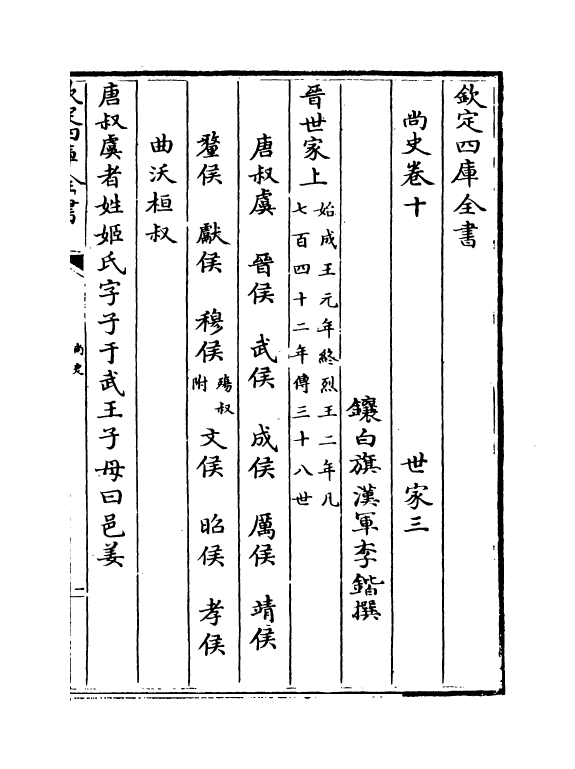 欽定四庫全書
尚史卷十 世家三
鑲白旗漢軍李鍇撰
晉世家上 始成王元年終烈王二年凡七百四十二年傳三十八世
唐叔虞 晉侯 武侯 成侯 厲侯 靖侯
釐侯 獻侯 穆侯 殤叔附 文侯 昭侯 孝侯
曲沃桓叔
唐叔虞者姓姬氏字子于武王子母曰邑姜
欽定四庫全書
尚史
一